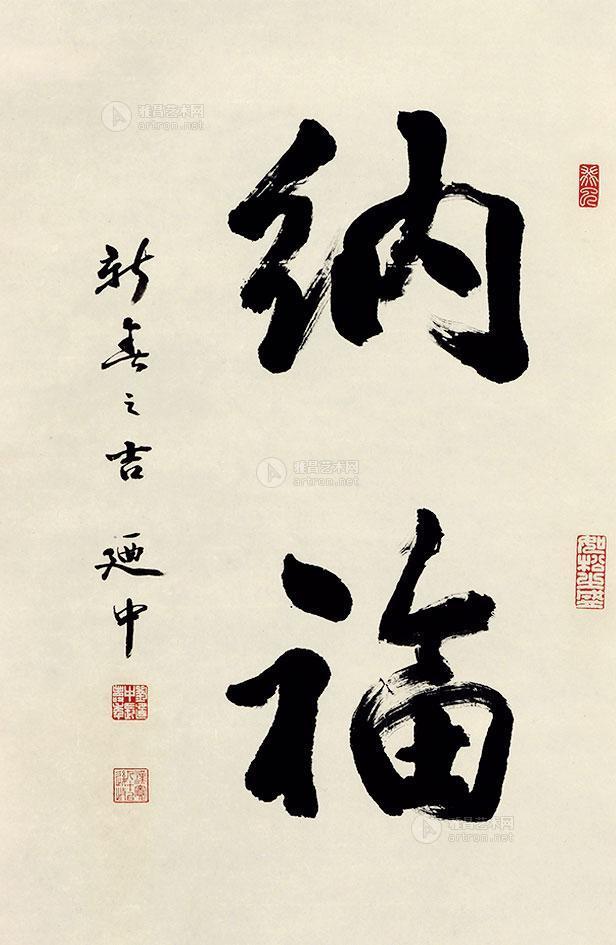 纳福
新春之吉 廼中
雅昌艺术网
artron.net
雅昌艺术网
artron.net
雅昌艺术网
artron.net